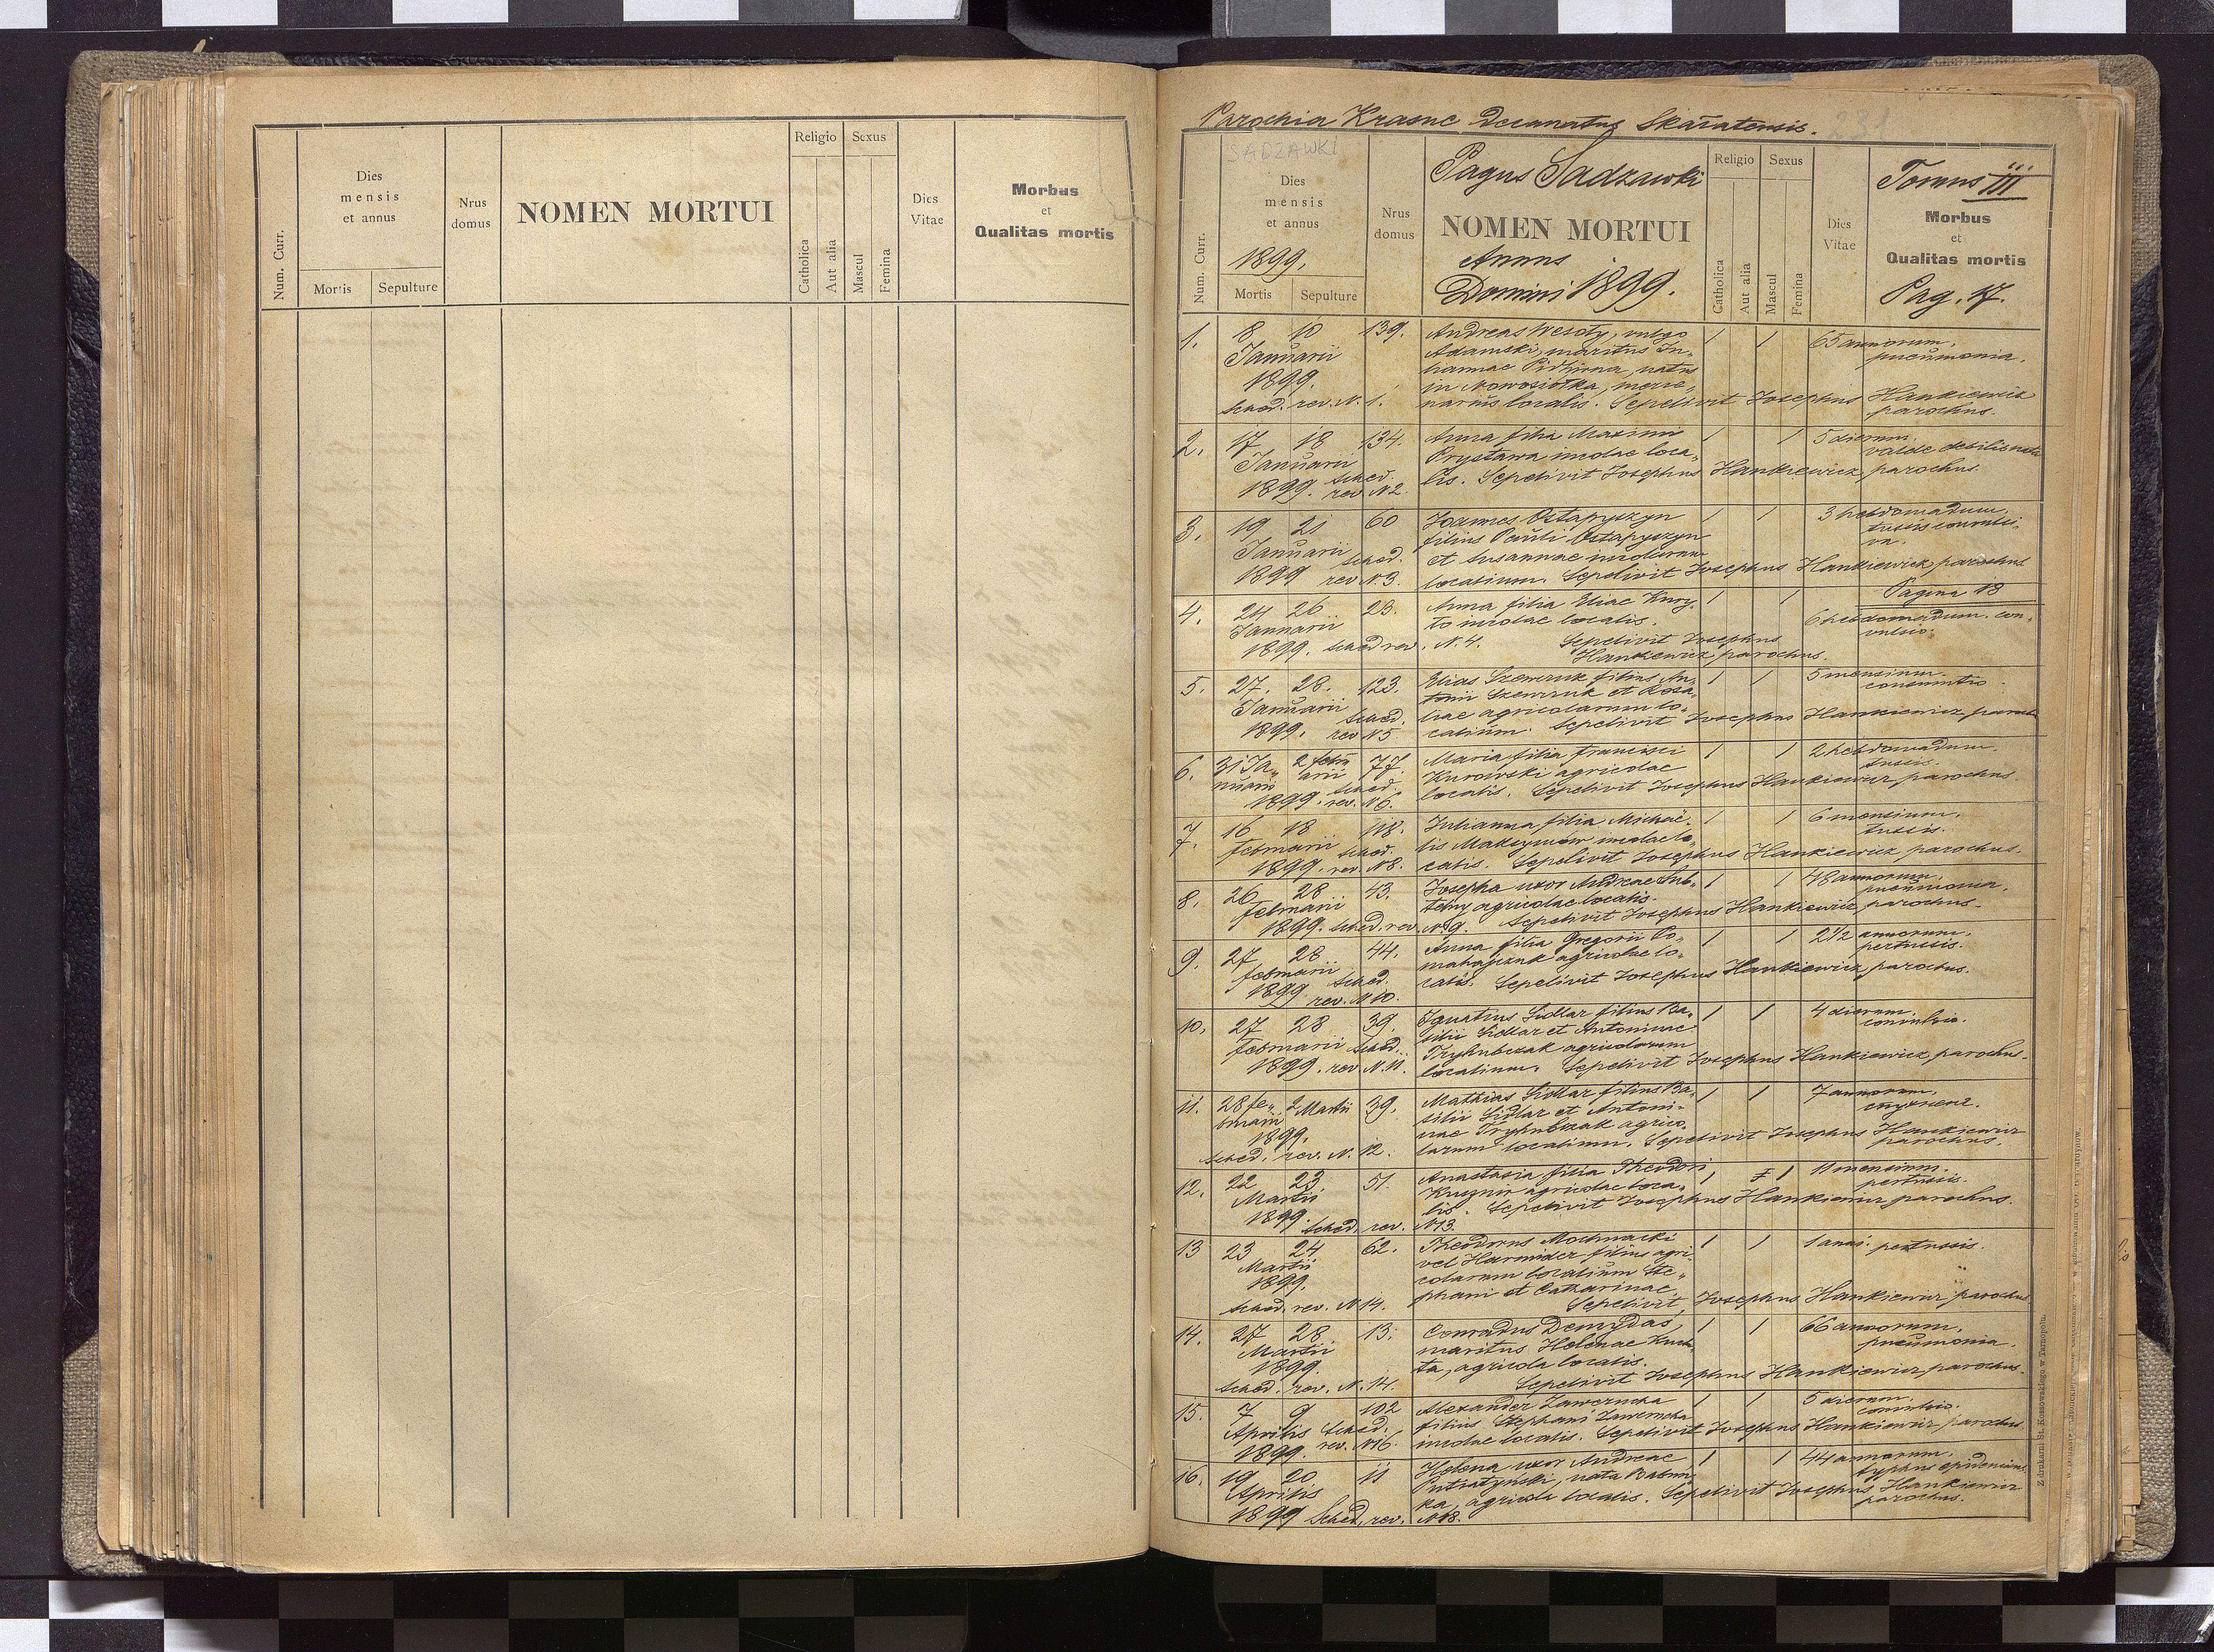 Dies
mensis
et annus
Nrus
domus
NOMEN MORTUI
Religio
Sexus
Dies
Vitae
Morbus
et
Qualitas mortis
Num. Curr.
Mortis
Sepulture
Catholica
Aut alia
Mascul
Femina
Parochia Krasne Decanatus Skałatensis.
SADZAWKI
Dies
mensis
et annus
1899.
Nrus
domus
Pagus Sadzawki
NOMEN MORTUI
Annus
Domini 1899.
Religio
Sexus
Dies
Vitae
Tomus III
Morbus
et
Qualitas mortis
Pag. 17.
Num. Curr.
Mortis
Sepulture
Catholica
Aut alia
Mascul
Femina
1. 8 10 139. Andreas Wesoły, vulgo 1 1 65 annorum.
Januarii Adamski, maritus pneumonia.
1899. natus
in Nowosiółka,
sched. rev. N. 1. localis. Sepelivit Josephus Hankiewicz
parochus.
2. 17 18 134. Anna filia Maximi 1 1 5 dierum.
Januarii Prystawa incolae loca- valde debilis
1899. sched. rev. N 2. lis. Sepelivit Josephus Hankiewicz, parochus.
3. 19 21 60 Joannes Ostapyszyn 1 1 3 hebdomadum.
Januarii filius Pauli Ostapyszyn tussis
sched. et Susannae incolarum
1899 rev. N 3. localium. Sepelivit Josephus Hankiewicz parochus
Pagina 18
4. 24 26 23. Anna filia Eliae 1 1 6 hebdomadum. con-
Januarii incolae localis. vulsio.
1899. sched. rev. N. 4. Sepelivit Josephus
Hankiewicz, parochus.
5. 27. 28. 123. Elias Szewczuk filius An- 1 1 5 mensium.
Januarii tonii Szewczuk et Rosa- consumtio.
sched. liae agricolarum lo-
1899. rev. N 5. calium. Sepelivit Josephus Hankiewicz
6. 31 Ja- 2 Febru 77. Maria filia Francisci 1 1 2 hebdomadum.
nuarii arii sched. Kurowski agricolae tussis.
1899. rev. N 6. localis. Sepelivit Josephus Hankiewicz parochus.
7. 16 18 118. Julianna filia Michae- 1 1 6 mensium.
Februarii sched. lis Maksymów incolae lo- tussis.
1899. rev. N 8. calis. Sepelivit Josephus Hankiewicz parochus.
8. 26 28 43. Josepha uxor Andreae 1 1 48 annorum.
Februarii agricolae localis. pneumonia.
1899. sched. rev. N 9. Sepelivit Josephus Hankiewicz, parochus.
9. 27 28 44. Anna filia Gregorii 1 1 2 1/2 annorum.
Februarii agricolae lo- pertussis.
sched. calis. Sepelivit Josephus Hankiewicz, parochus.
1899 rev. N 10.
10. 27 28 39. Ignatius Sidlar filius Ba- 1 1 4 dierum.
Februarii sched. silii Sidlar et Antoninae convulsio.
Tryhubczak agricolarum
1899. rev. N. 11. localium. Sepelivit Josephus Hankiewicz parochus.
11. 28 Fe- 2 Martii 39. Mathias Sidlar filius Ba- 1 1 7 annorum.
bruarii silii Sidlar et Antoni-
1899. nae Tryhubczak agrico-
sched. rev. N. 12. larum localium. Sepelivit Josephus Hankiewicz
parochus.
12. 22 23 51. Anastasia filia Theodori 1 1 11 mensium.
Martii agricolae loca- pertussis.
1899. lis. Sepelivit Josephus Hankiewicz parochus.
sched. rev. N 13.
13 23 24 62. Theodorus Mochnacki 1 1 1 anni. pertussis.
Martii vel filius agri-
1899. colarum localium Ste-
phani et Catharinae.
sched. rev. N 14. Sepelivit Josephus Hankiewicz parochus
14. 27 28 13. Conradus Demydas, 1 1 66 annorum.
Martii maritus Helenae Kuch- pneumonia.
1899. ta, agricola localis.
sched. rev. N. 14. Sepelivit Josephus Hankiewicz parochus.
15. 7 9 102 Alexander Zawerucha 1 1 5 dierum.
Aprilis Sched. filius Stephani Zawerucha convulsio.
1899. rev. N 16. incolae localis. Sepelivit Josephus Hankiewicz parochus
16. 19 20 11 Helena uxor Andreae 1 1 44 annorum.
Aprilis nata typhus
agricola localis. Sepelivit Josephus Hankiewicz
1899 Sched. rev. N 18. parochus.
Z drukarni St. Kossowskiego w Tarnopolu.